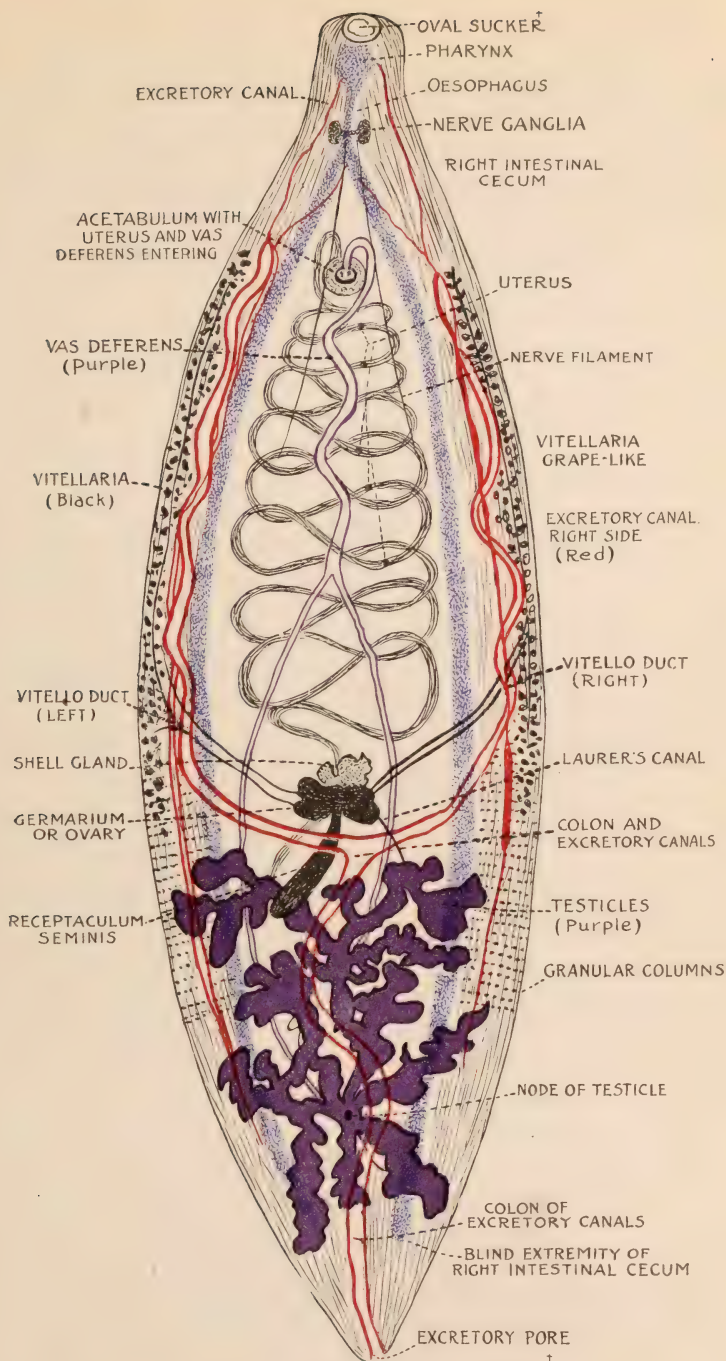 OVAL SUCKER†
PHARYNX
EXCRETORY CANAL
OESOPHAGUS
NERVE GANGLIA
RIGHT INTESTINAL
CECUM
ACETABULUM WITH
UTERUS AND VAS
DEFERENS ENTERING
UTERUS
VAS DEFERENS
(Purple)
NERVE FILAMENT
VITELLARIA
GRAPE-LIKE
VITELLARIA
(Black)
EXCRETORY CANAL
RIGHT SIDE
(Red)
VITELLO DUCT
(RIGHT)
VITELLO DUCT
(LEFT)
SHELL GLAND
LAURER'S CANAL
GERMARIUM
OR OVARY
COLON AND
EXCRETORY CANALS
RECEPTACULUM
SEMINIS
TESTICLES
(Purple)
GRANULAR COLUMNS
NODE OF TESTICLE
COLON OF
EXCRETORY CANALS
BLIND EXTREMITY OF
RIGHT INTESTINAL CECUM
EXCRETORY PORE
†